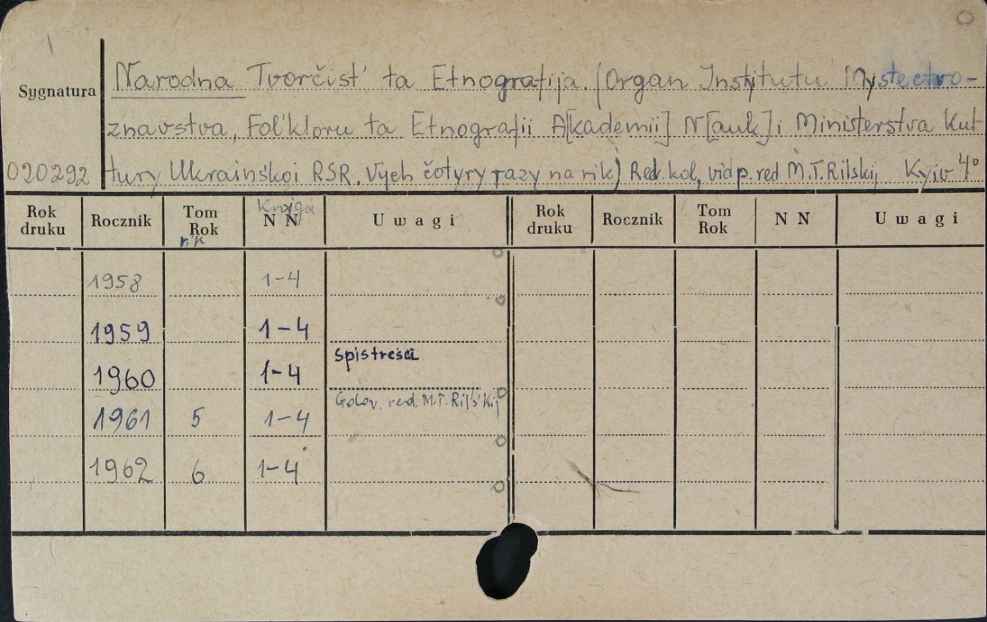 Narodna Tvorčist' ta Etnografija. (Organ Instytutu Mystectvo-
Sygnatura
znavstva, Fol'kloru ta Etnografii A[kademii] N[auk] i Ministerstva Kul'
020292
tury Ukrainśkoi RSR. Vych čotyry razy na rik) Red. kol, vidp. red M.T. Rilskij Kyiv 4°
Rok druku Rocznik Tom Rok N N Uwagi Rok druku Rocznik Tom Rok N N Uwagi
rik Knyga
1958 1-4
1959 1-4
Spis treści
1960 1-4
Golov. red. M.T. Ril's'kij
1961 5 1-4
1962 6 1-4